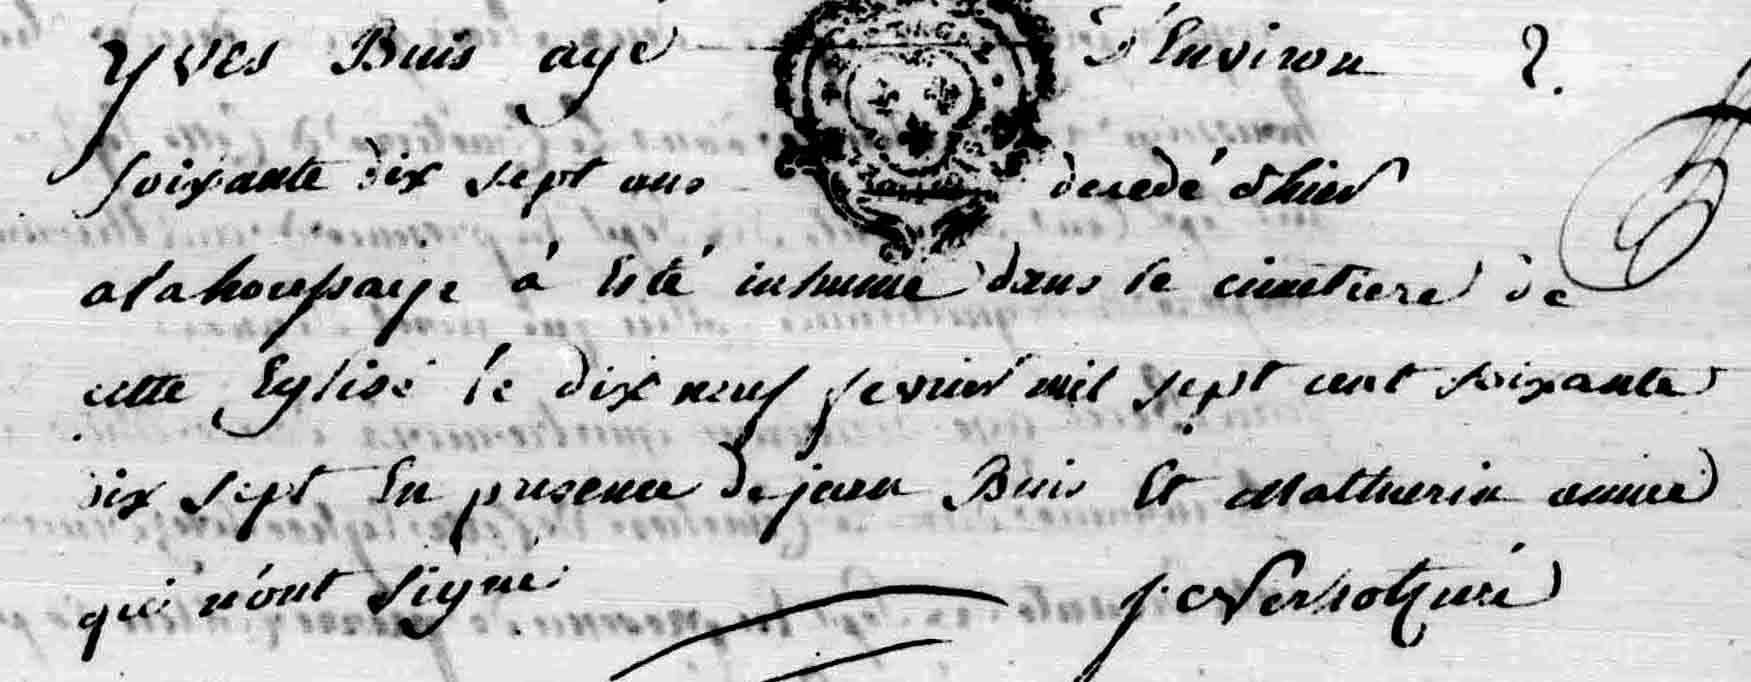 Yves Buis agé d'Environ
soixante dix sept ans decedé d'hier
a la houssaye à Esté inhumé dans le cimetiere de
cette Eglise le dix neuf fevrier mil sept cent soixante
dix sept En presence de jean Buis Et Mathurin
qui n'ont signé